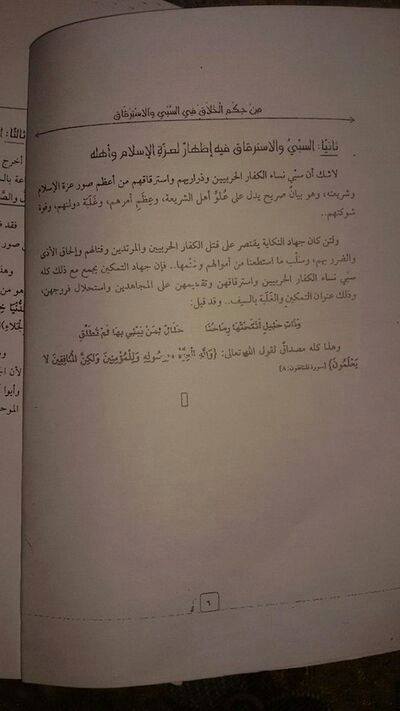 مِنْ حِكَمِ الْخَلَّاقِ فِي السَّبْيِ وَالاسْتِرْقَاقِ
ثانيًا: السبْيُ والاسترقاق فيه إظهارٌ لعزةِ الإسلام وأهله
لاشك أن سبْي نساء الكفار الحربيين وذراريهم واسترقاقهم من أعظم صور عزة الإسلام
وشريعته، وهو بيانٌ صريح يدل على عُلوِّ أهل الشريعة، وعِظَمِ أمرهم، وغَلَبَة دولتهم، وقوة
شوكتهم..
ولئن كان جهاد النكاية يقتصر على قتل الكفار الحربيين والمرتدين وقتالهم وإلحاق الأذى
والضرر بهم، وسلْب ما استطعنا من أموالهم وغنْمها.. فإن جهاد التمكين يجمع مع ذلك كله
سبْي نساء الكفار الحربيين واسترقاقهن وتقسيمهن على المجاهدين واستحلال فروجهن،
وذلك عنوان التمكين والغَلَبة بالسيف.. وقد قيل:
وذاتِ حَليلٍ أنكَحَتْها رِمَاحُنَا حَلَالٌ لِمَنْ يَبْنِي بِهَا لَمْ تُطَلَّقِ
وهذا كله مصداقٌ لقول الله تعالى: {وَلِلَّهِ الْعِزَّةُ وَلِرَسُولِهِ وَلِلْمُؤْمِنِينَ وَلَكِنَّ الْمُنَافِقِينَ لَا
يَعْلَمُونَ} [سورة المنافقون: ٨]
٦
ثالثًا:
أخرج